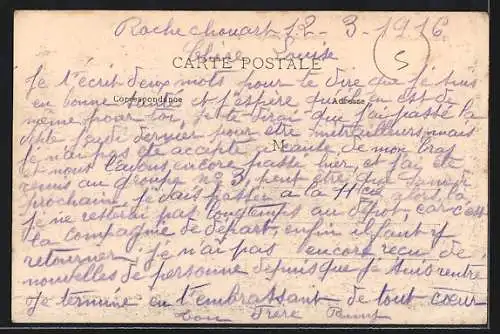 Rochechouart 12 - 3 - 1916
Chère Louise
S
CARTE POSTALE
Correspondance
Adresse
M
Je t'écrit deux mots pour te dire que je suis
en bonne santé et j'espère qu'il en est de
même pour toi, je te dirai que j'ai passé la
visite jeudi dernier pour être mitrailleurs, mais
je n'ai pas été accepté a cause de mon bras
et nous l'avons encore passé hier, et j'ai été
remis au groupe no 3 peut être que Samedi
prochaine je vais passer a la 11 cie alors la
je ne resterai pas longtemps au dépot, car c'est
la compagnie de départ, enfin il faut y
retourner. je n'ai pas encore reçu de
nouvelles de personne depuis que je suis rentré
Je termine en t'embrassant de tout cœur
ton Frère